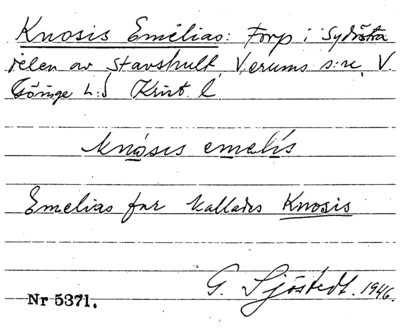 Knosis Emelias: Torp i Sydöstra
delen av Stavshult, Verums s:n, V
Göinge h:d Krist. l
knósis emelís
Emelias far kallades Knosis
G. Sjöstedt. 1946.
Nr 5371.